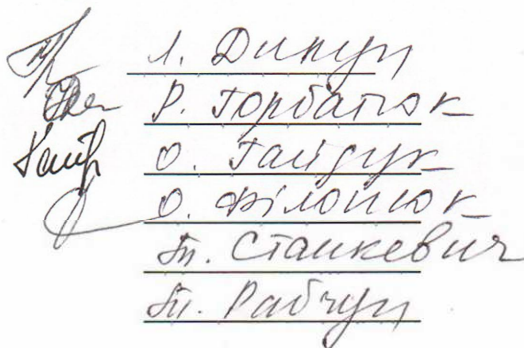 Л. Дикун
Р. Горбатюк
О. Гайдук
О. Філонюк
Т. Станкевич
Т. Рабчун